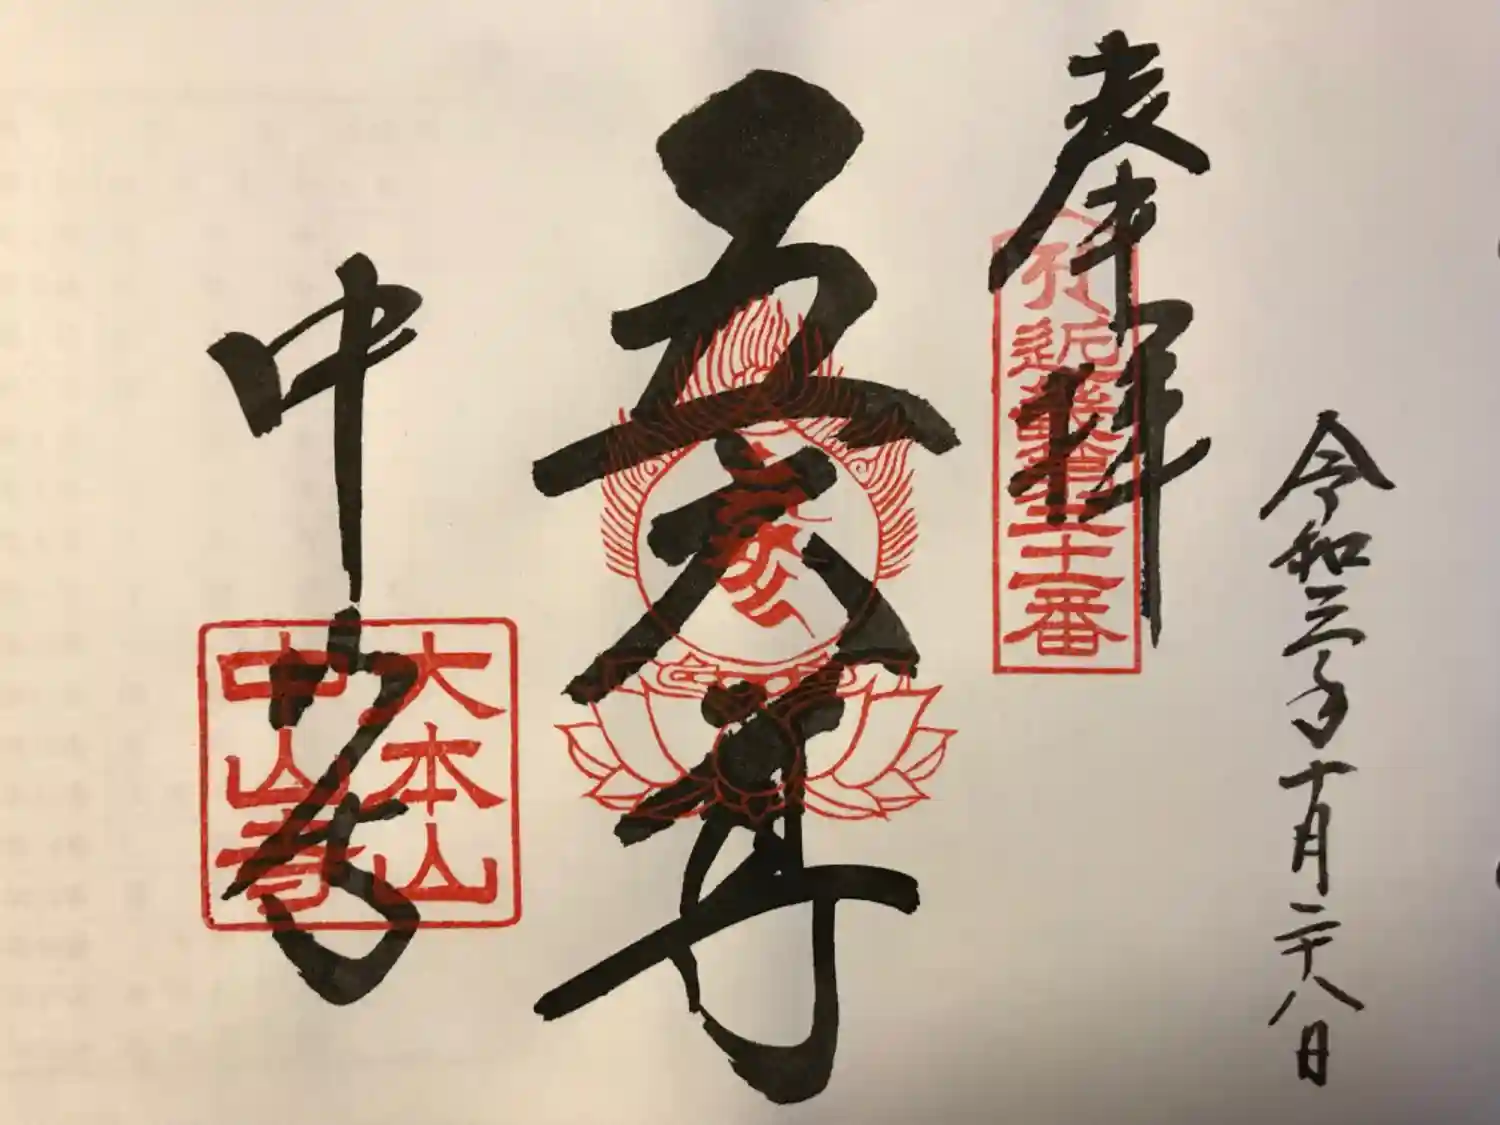 令和三年十月二十八日
奉拝
近畿第二十一番
五大尊
中山寺
大本山
中山寺